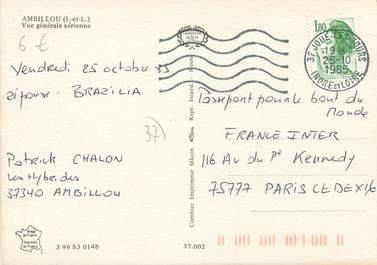 AMBILLOU (I.-et-L.)
Vue générale aérienne
6 €
Vendredi 25 octobre 85
réponse : BRAZILIA
37)
Patrick CHALON
37340 AMBILLOU
3 99 83 0148
Combier Imprimeur Mâcon
37.002
1,80
37 JOUE-LES-TOURS
19 H
25-10
1985
INDRE et LOIRE
Passeport pour le bout du
Monde
FRANCE INTER
116 Av du Pt Kennedy
75777 PARIS CEDEX 16